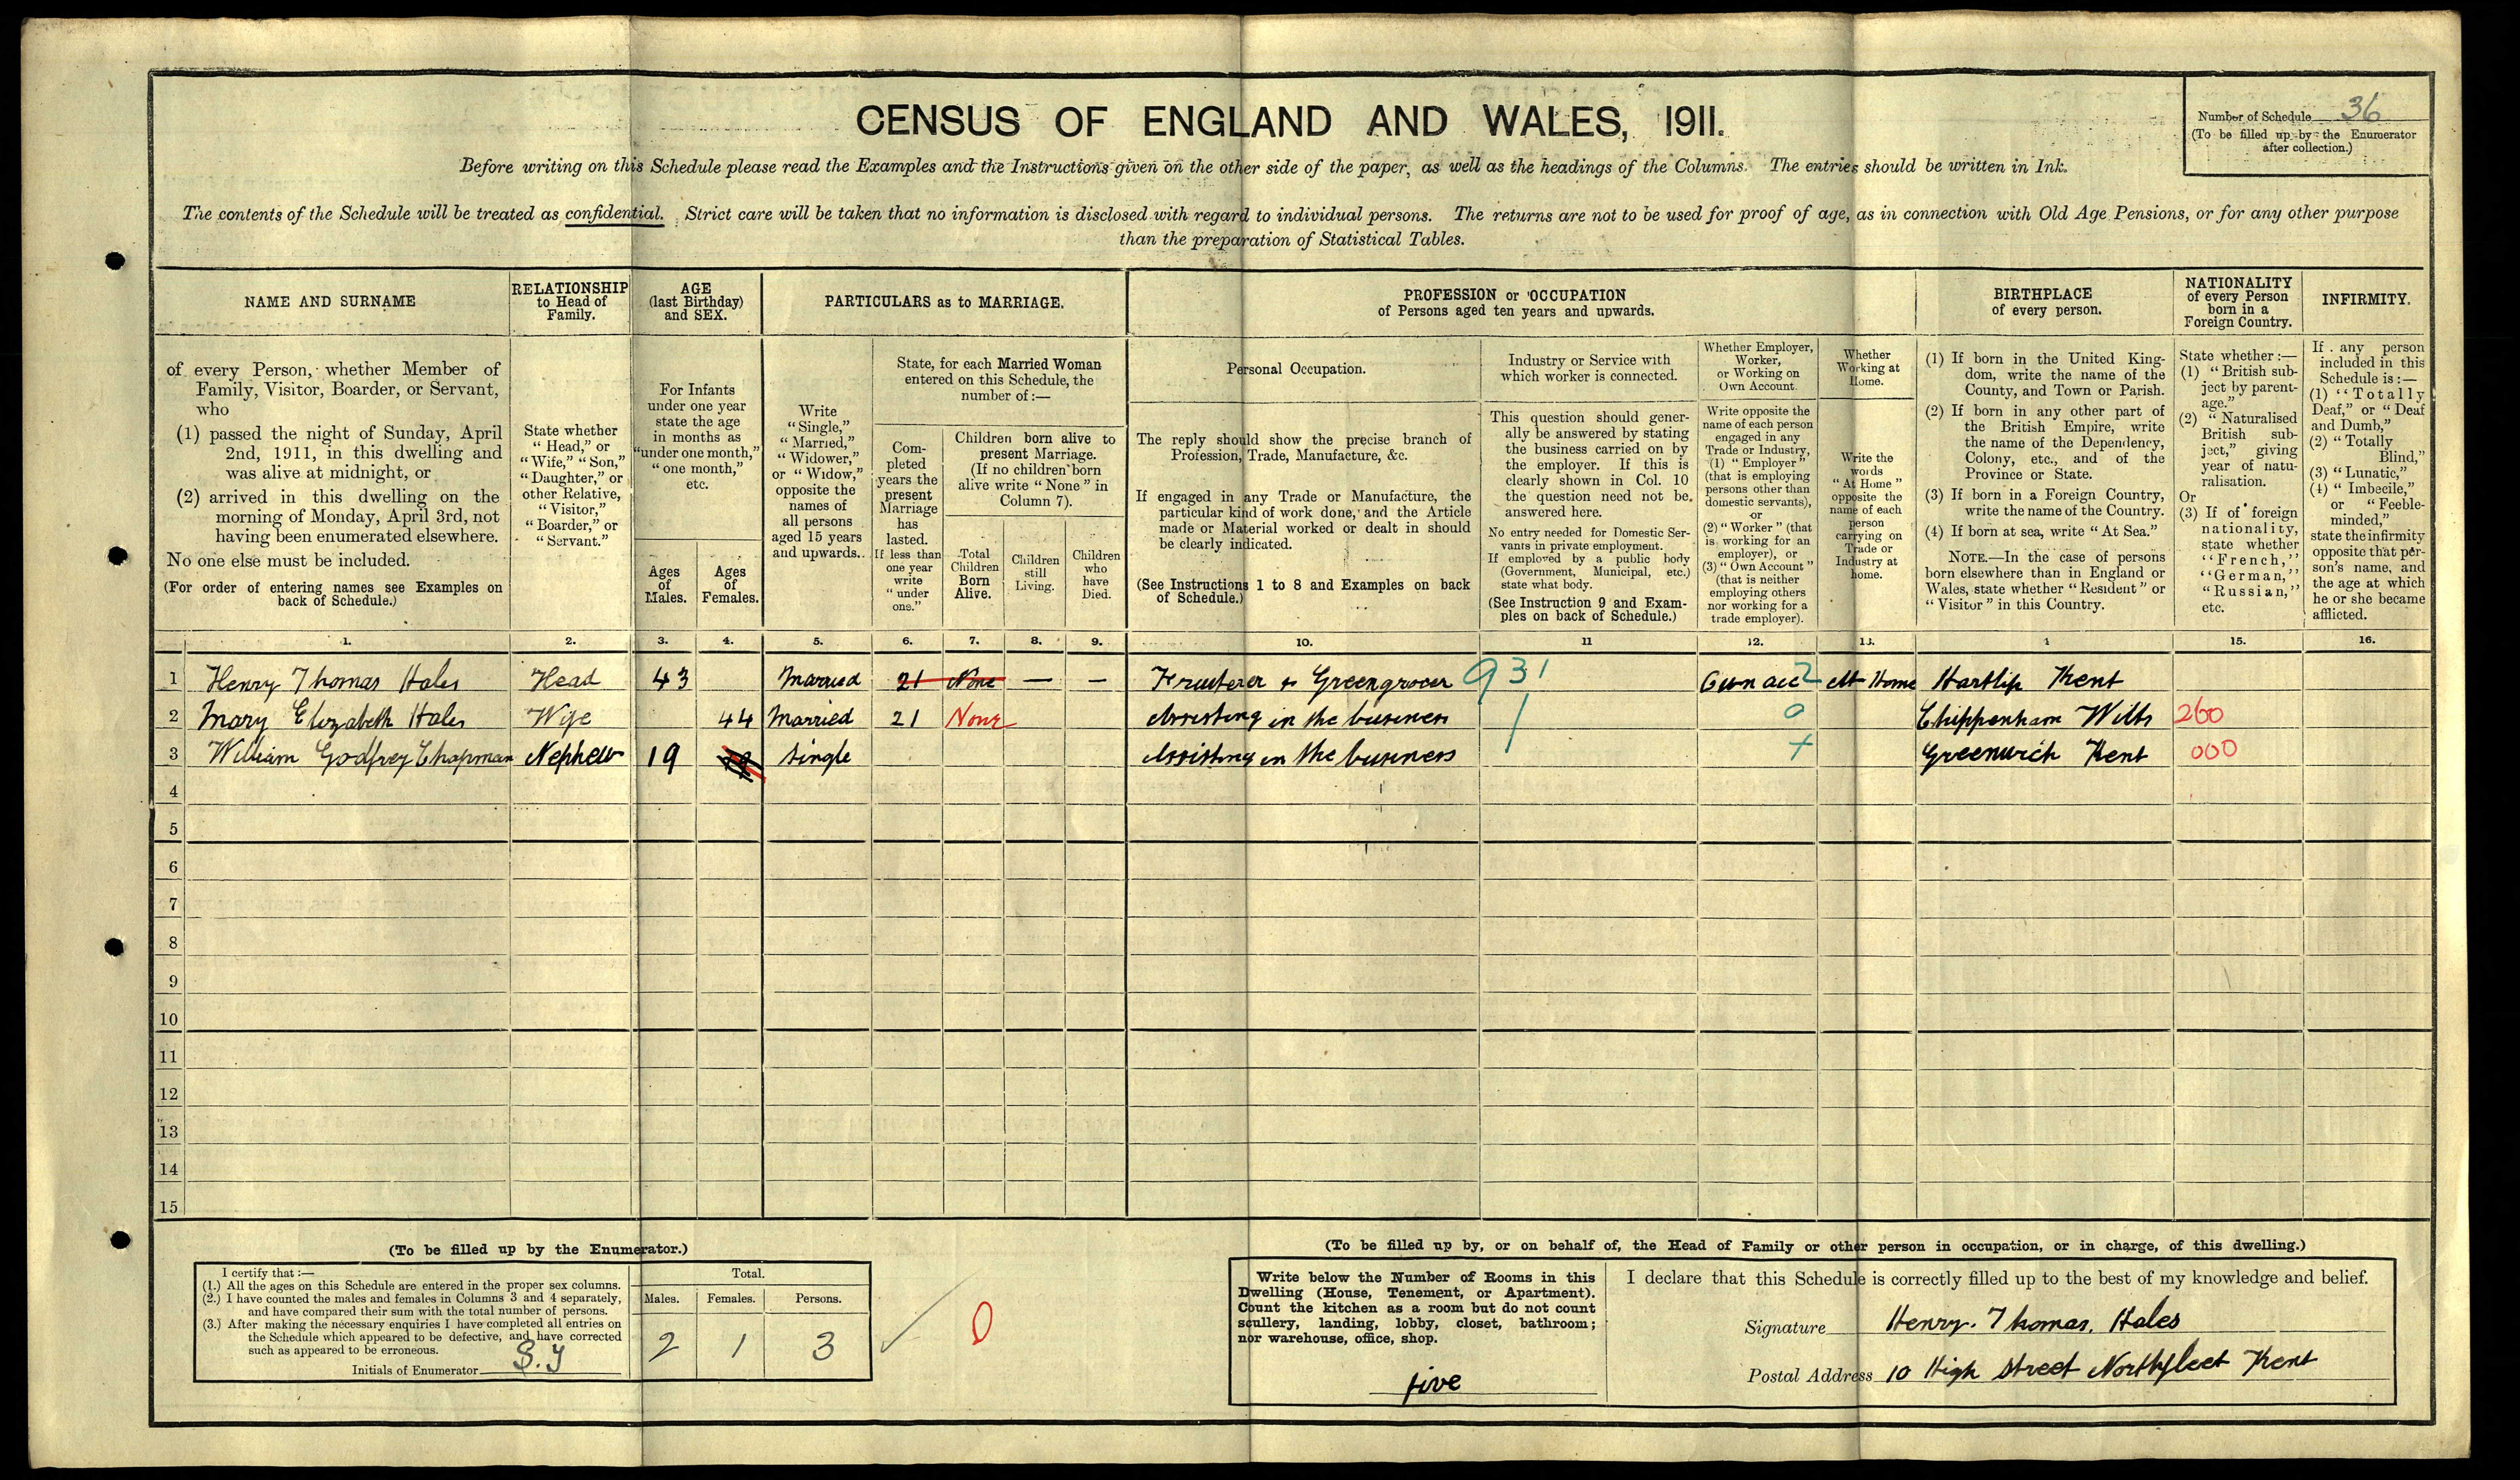 CENSUS OF ENGLAND AND WALES, 1911.
Number of Schedule 36
(To be filled up by the Enumerator
after collection.)
Before writing on this Schedule please read the Examples and the Instructions given on the other side of the paper, as well as the headings of the Columns. The entries should be written in Ink.
The contents of the Schedule will be treated as confidential. Strict care will be taken that no information is disclosed with regard to individual persons. The returns are not to be used for proof of age, as in connection with Old Age Pensions, or for any other purpose
than the preparation of Statistical Tables.
NAME AND SURNAME
of every Person, whether Member of
Family, Visitor, Boarder, or Servant,
who
(1) passed the night of Sunday, April
2nd, 1911, in this dwelling and
was alive at midnight, or
(2) arrived in this dwelling on the
morning of Monday, April 3rd, not
having been enumerated elsewhere.
No one else must be included.
(For order of entering names see Examples on
back of Schedule.)
RELATIONSHIP
to Head of
Family.
State whether
"Head," or
"Wife," "Son,"
"Daughter," or
other Relative,
"Visitor,"
"Boarder," or
"Servant."
AGE
(last Birthday)
and SEX.
For Infants
under one year
state the age
in months as
"under one month,"
"one month,"
etc.
Ages
of
Males.
Ages
of
Females.
PARTICULARS as to MARRIAGE.
Write
"Single,"
"Married,"
"Widower,"
or "Widow,"
opposite the
names of
all persons
aged 15 years
and upwards.
State, for each Married Woman
entered on this Schedule, the
number of:—
Com-
pleted
years the
present
Marriage
has
lasted.
If less than
one year
write
"under
one."
Children born alive to
present Marriage.
(If no children born
alive write "None" in
Column 7).
Total
Children
Born
Alive.
Children
still
Living.
Children
who
have
Died.
PROFESSION or OCCUPATION
of Persons aged ten years and upwards.
Personal Occupation.
The reply should show the precise branch of
Profession, Trade, Manufacture, &c.
If engaged in any Trade or Manufacture, the
particular kind of work done, and the Article
made or Material worked or dealt in should
be clearly indicated.
(See Instructions 1 to 8 and Examples on back
of Schedule.)
Industry or Service with
which worker is connected.
This question should gener-
ally be answered by stating
the business carried on by
the employer. If this is
clearly shown in Col. 10
the question need not be
answered here.
No entry needed for Domestic Ser-
vants in private employment.
If employed by a public body
(Government, Municipal, etc.)
state what body.
(See Instruction 9 and Exam-
ples on back of Schedule.)
Whether Employer,
Worker,
or Working on
Own Account.
Write opposite the
name of each person
engaged in any
Trade or Industry,
(1) "Employer"
(that is employing
persons other than
domestic servants),
or
(2) "Worker" (that
is working for an
employer), or
(3) "Own Account"
(that is neither
employing others
nor working for a
trade employer).
Whether
Working at
Home.
Write the
words
"At Home"
opposite the
name of each
person
carrying on
Trade or
Industry at
home.
BIRTHPLACE
of every person.
(1) If born in the United King-
dom, write the name of the
County, and Town or Parish.
(2) If born in any other part of
the British Empire, write
the name of the Dependency,
Colony, etc., and of the
Province or State.
(3) If born in a Foreign Country,
write the name of the Country.
(4) If born at sea, write "At Sea."
NOTE.—In the case of persons
born elsewhere than in England or
Wales, state whether "Resident" or
"Visitor" in this Country.
NATIONALITY
of every Person
born in a
Foreign Country.
State whether:—
(1) "British sub-
ject by parent-
age."
(2) "Naturalised
British sub-
ject," giving
year of natu-
ralisation.
Or
(3) If of foreign
nationality,
state whether
"French,"
"German,"
"Russian,"
etc.
INFIRMITY.
If any person
included in this
Schedule is:—
(1) "Totally
Deaf," or "Deaf
and Dumb,"
(2) "Totally
Blind,"
(3) "Lunatic,"
(4) "Imbecile,"
or "Feeble-
minded,"
state the infirmity
opposite that per-
son's name, and
the age at which
he or she became
afflicted.
1. 2. 3. 4. 5. 6. 7. 8. 9. 10. 11 12. 13. 15. 16.
1 Henry Thomas Hales Head 43 Married 21 None — — Fruiterer & Greengrocer 931 Own acc 2 At Home Hartlip Kent
2 Mary Elizabeth Hales Wife 44 Married 21 None Assisting in the business 0 Chippenham Wilts 260
3 William Godfrey Chapman Nephew 19 Single Assisting in the business + Greenwich Kent 000
4
5
6
7
8
9
10
11
12
13
14
15
(To be filled up by the Enumerator.)
I certify that:—
(1.) All the ages on this Schedule are entered in the proper sex columns.
(2.) I have counted the males and females in Columns 3 and 4 separately,
and have compared their sum with the total number of persons.
(3.) After making the necessary enquiries I have completed all entries on
the Schedule which appeared to be defective, and have corrected
such as appeared to be erroneous.
Initials of Enumerator
Total.
Males. Females. Persons.
2 1 3
0
(To be filled up by, or on behalf of, the Head of Family or other person in occupation, or in charge, of this dwelling.)
Write below the Number of Rooms in this
Dwelling (House, Tenement, or Apartment).
Count the kitchen as a room but do not count
scullery, landing, lobby, closet, bathroom;
nor warehouse, office, shop.
five
I declare that this Schedule is correctly filled up to the best of my knowledge and belief.
Signature Henry. Thomas. Hales
Postal Address 10 High Street Northfleet Kent